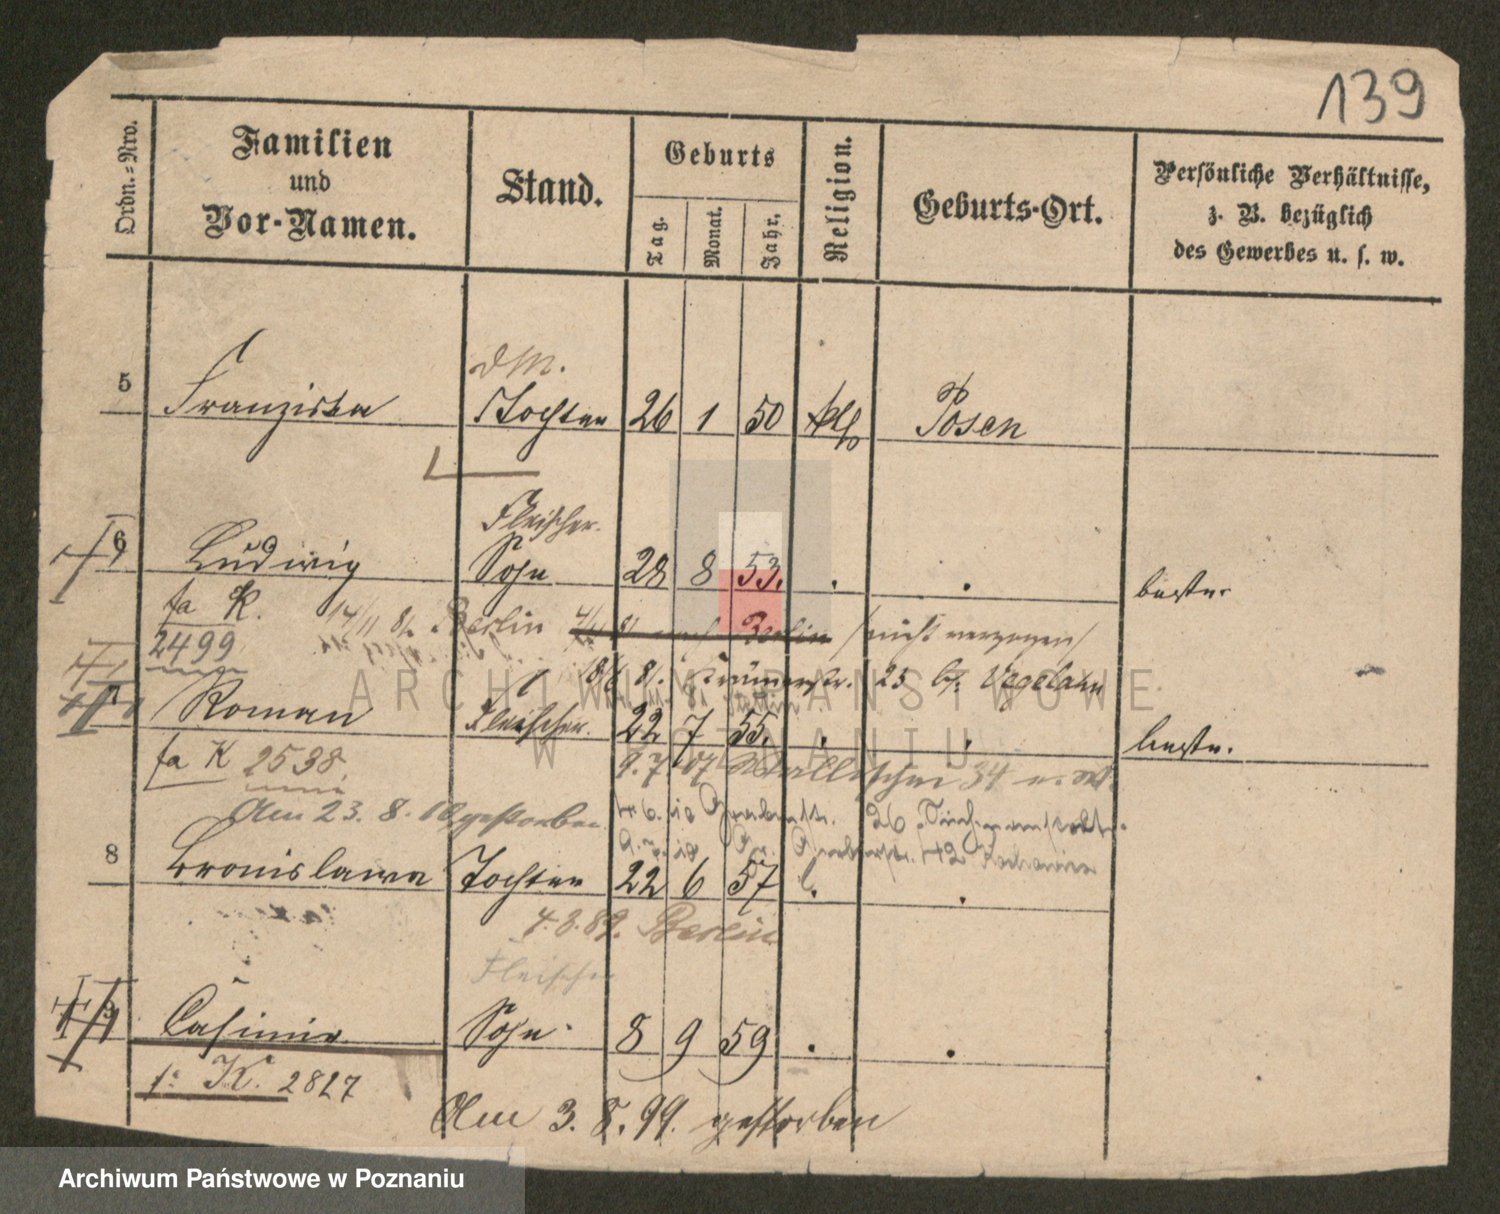 139
Ordn.-Nro.
Familien
und
Vor-Namen.
Stand.
Geburts
Tag.
Monat.
Jahr.
Religion.
Geburts-Ort.
Persönliche Verhältnisse,
z. B. bezüglich
des Gewerbes u. s. w.
5 Franziska Tochter 26 1 50 kth Posen
Fleischer.
6 Ludwig Sohn 28 8 53. . .
fa K. 14/11 81. Berlin Berlin /nicht verzogen/
2499
25 b/. Vogelahn
7 Roman Fleischer. 22 7 55. . .
fa K 2538.
9. 7 07 Wallischei 34
Am 23. 8. 10 gestorben
8 Bronislawa Tochter 22 6 57 . .
4.3.89. Berlin
Fleischer
9 Casimir Sohn 8 9 59 . .
K. 2827
Am 3. 8. 99. gestorben
ARCHIWUM PAŃSTWOWE
W POZNANIU
Archiwum Państwowe w Poznaniu